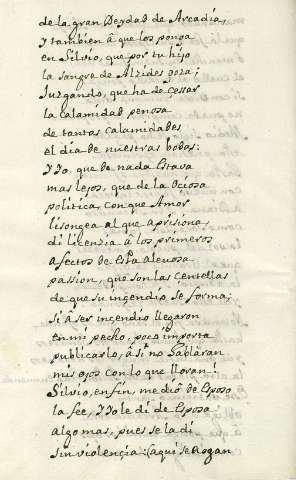 de la gran Deydad de Arcadia,
y tambien â que los ponga
en Silvio, que por tu hijo
la sangre de Alzides goza;
Juzgando, que ha de cessar
la calamidad penosa
de tantas calamidades
el dia de nuestras bodas:
Y Yo, que de nada estava
mas lejos, que de la ociosa
politica, con que Amor
lisongea al que aprisiona,
di licenzia â los primeros
afectos de esta alevosa
passion, que son las centellas
de que su inçendio se forma;
si â ser inçendio llegaron
en mi pecho, poco importa
publicarlo, â si no hablàran
mis ojos con lo que lloran!
Silvio, en fin, me diô de Esposo
la fee, Y Yo le dî de Esposa
algo mas, pues se la dî
sin violençia: (aqui se